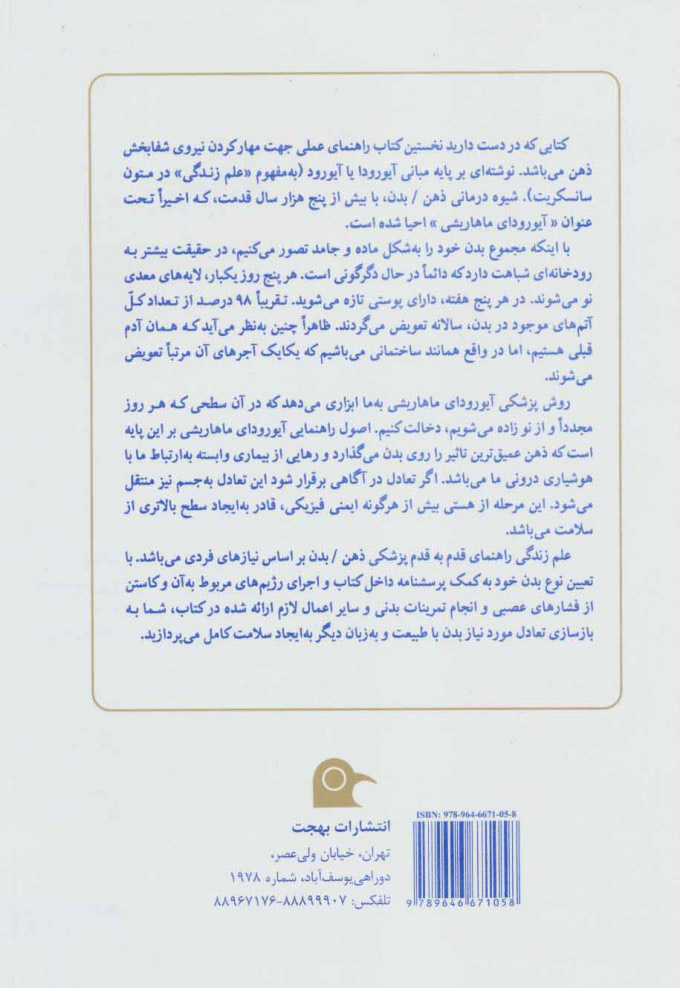 کتابی که در دست دارید نخستین کتاب راهنمای عملی جهت مهار کردن نیروی شفابخش
ذهن می‌باشد. نوشته‌ای بر پایه مبانی آیورودا یا آیورود (به‌مفهوم «علم زندگی» در متون
سانسکریت). شیوه درمانی ذهن / بدن، با بیش از پنج هزار سال قدمت، که اخیراً تحت
عنوان « آیورودای ماهاریشی » احیا شده است.
با اینکه مجموع بدن خود را به‌شکل ماده و جامد تصور می‌کنیم، در حقیقت بیشتر به
رودخانه‌ای شباهت دارد که دائماً در حال دگرگونی است. هر پنج روز یکبار، لایه‌های معدی
نو می‌شوند. در هر پنج هفته، دارای پوستی تازه می‌شوید. تقریباً ۹۸ درصد از تعداد کلّ
آتم‌های موجود در بدن، سالانه تعویض می‌گردند. ظاهراً چنین به‌نظر می‌آید که همان آدم
قبلی هستیم، اما در واقع همانند ساختمانی می‌باشیم که یکایک آجرهای آن مرتباً تعویض
می‌شوند.
روش پزشکی آیورودای ماهاریشی به‌ما ابزاری می‌دهد که در آن سطحی که هر روز
مجدداً و از نو زاده می‌شویم، دخالت کنیم. اصول راهنمایی آیورودای ماهاریشی بر این پایه
است که ذهن عمیق‌ترین تاثیر را روی بدن می‌گذارد و رهایی از بیماری وابسته به‌ارتباط ما با
هوشیاری درونی ما می‌باشد. اگر تعادل در آگاهی برقرار شود این تعادل به‌جسم نیز منتقل
می‌شود. این مرحله از هستی بیش از هرگونه ایمنی فیزیکی، قادر به‌ایجاد سطح بالاتری از
سلامت می‌باشد.
علم زندگی راهنمای قدم به قدم پزشکی ذهن / بدن بر اساس نیازهای فردی می‌باشد. با
تعیین نوع بدن خود به کمک پرسشنامه داخل کتاب و اجرای رژیم‌های مربوط به‌آن و کاستن
از فشارهای عصبی و انجام تمرینات بدنی و سایر اعمال لازم ارائه شده در کتاب، شما به
بازسازی تعادل مورد نیاز بدن با طبیعت و به‌زبان دیگر به‌ایجاد سلامت کامل می‌پردازید.
انتشارات بهجت
تهران، خیابان ولی‌عصر،
دوراهی‌یوسف‌آباد، شماره ۱۹۷۸
تلفکس: ۸۸۸۹۹۹۰۷-۸۸۹۶۷۱۷۶
ISBN: 978-964-6671-05-8
9 789646 671058